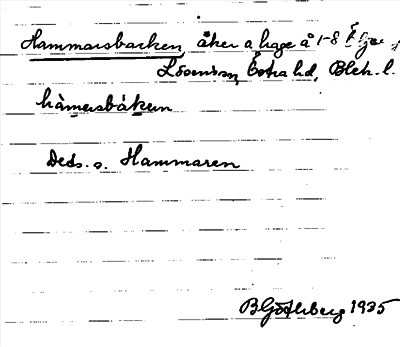 Hammarsbacken, åker o hage å 1-8
Östra hd, Blek. l.
hàmersbákun
Deds. o. Hammaren
B Götlberg 1935